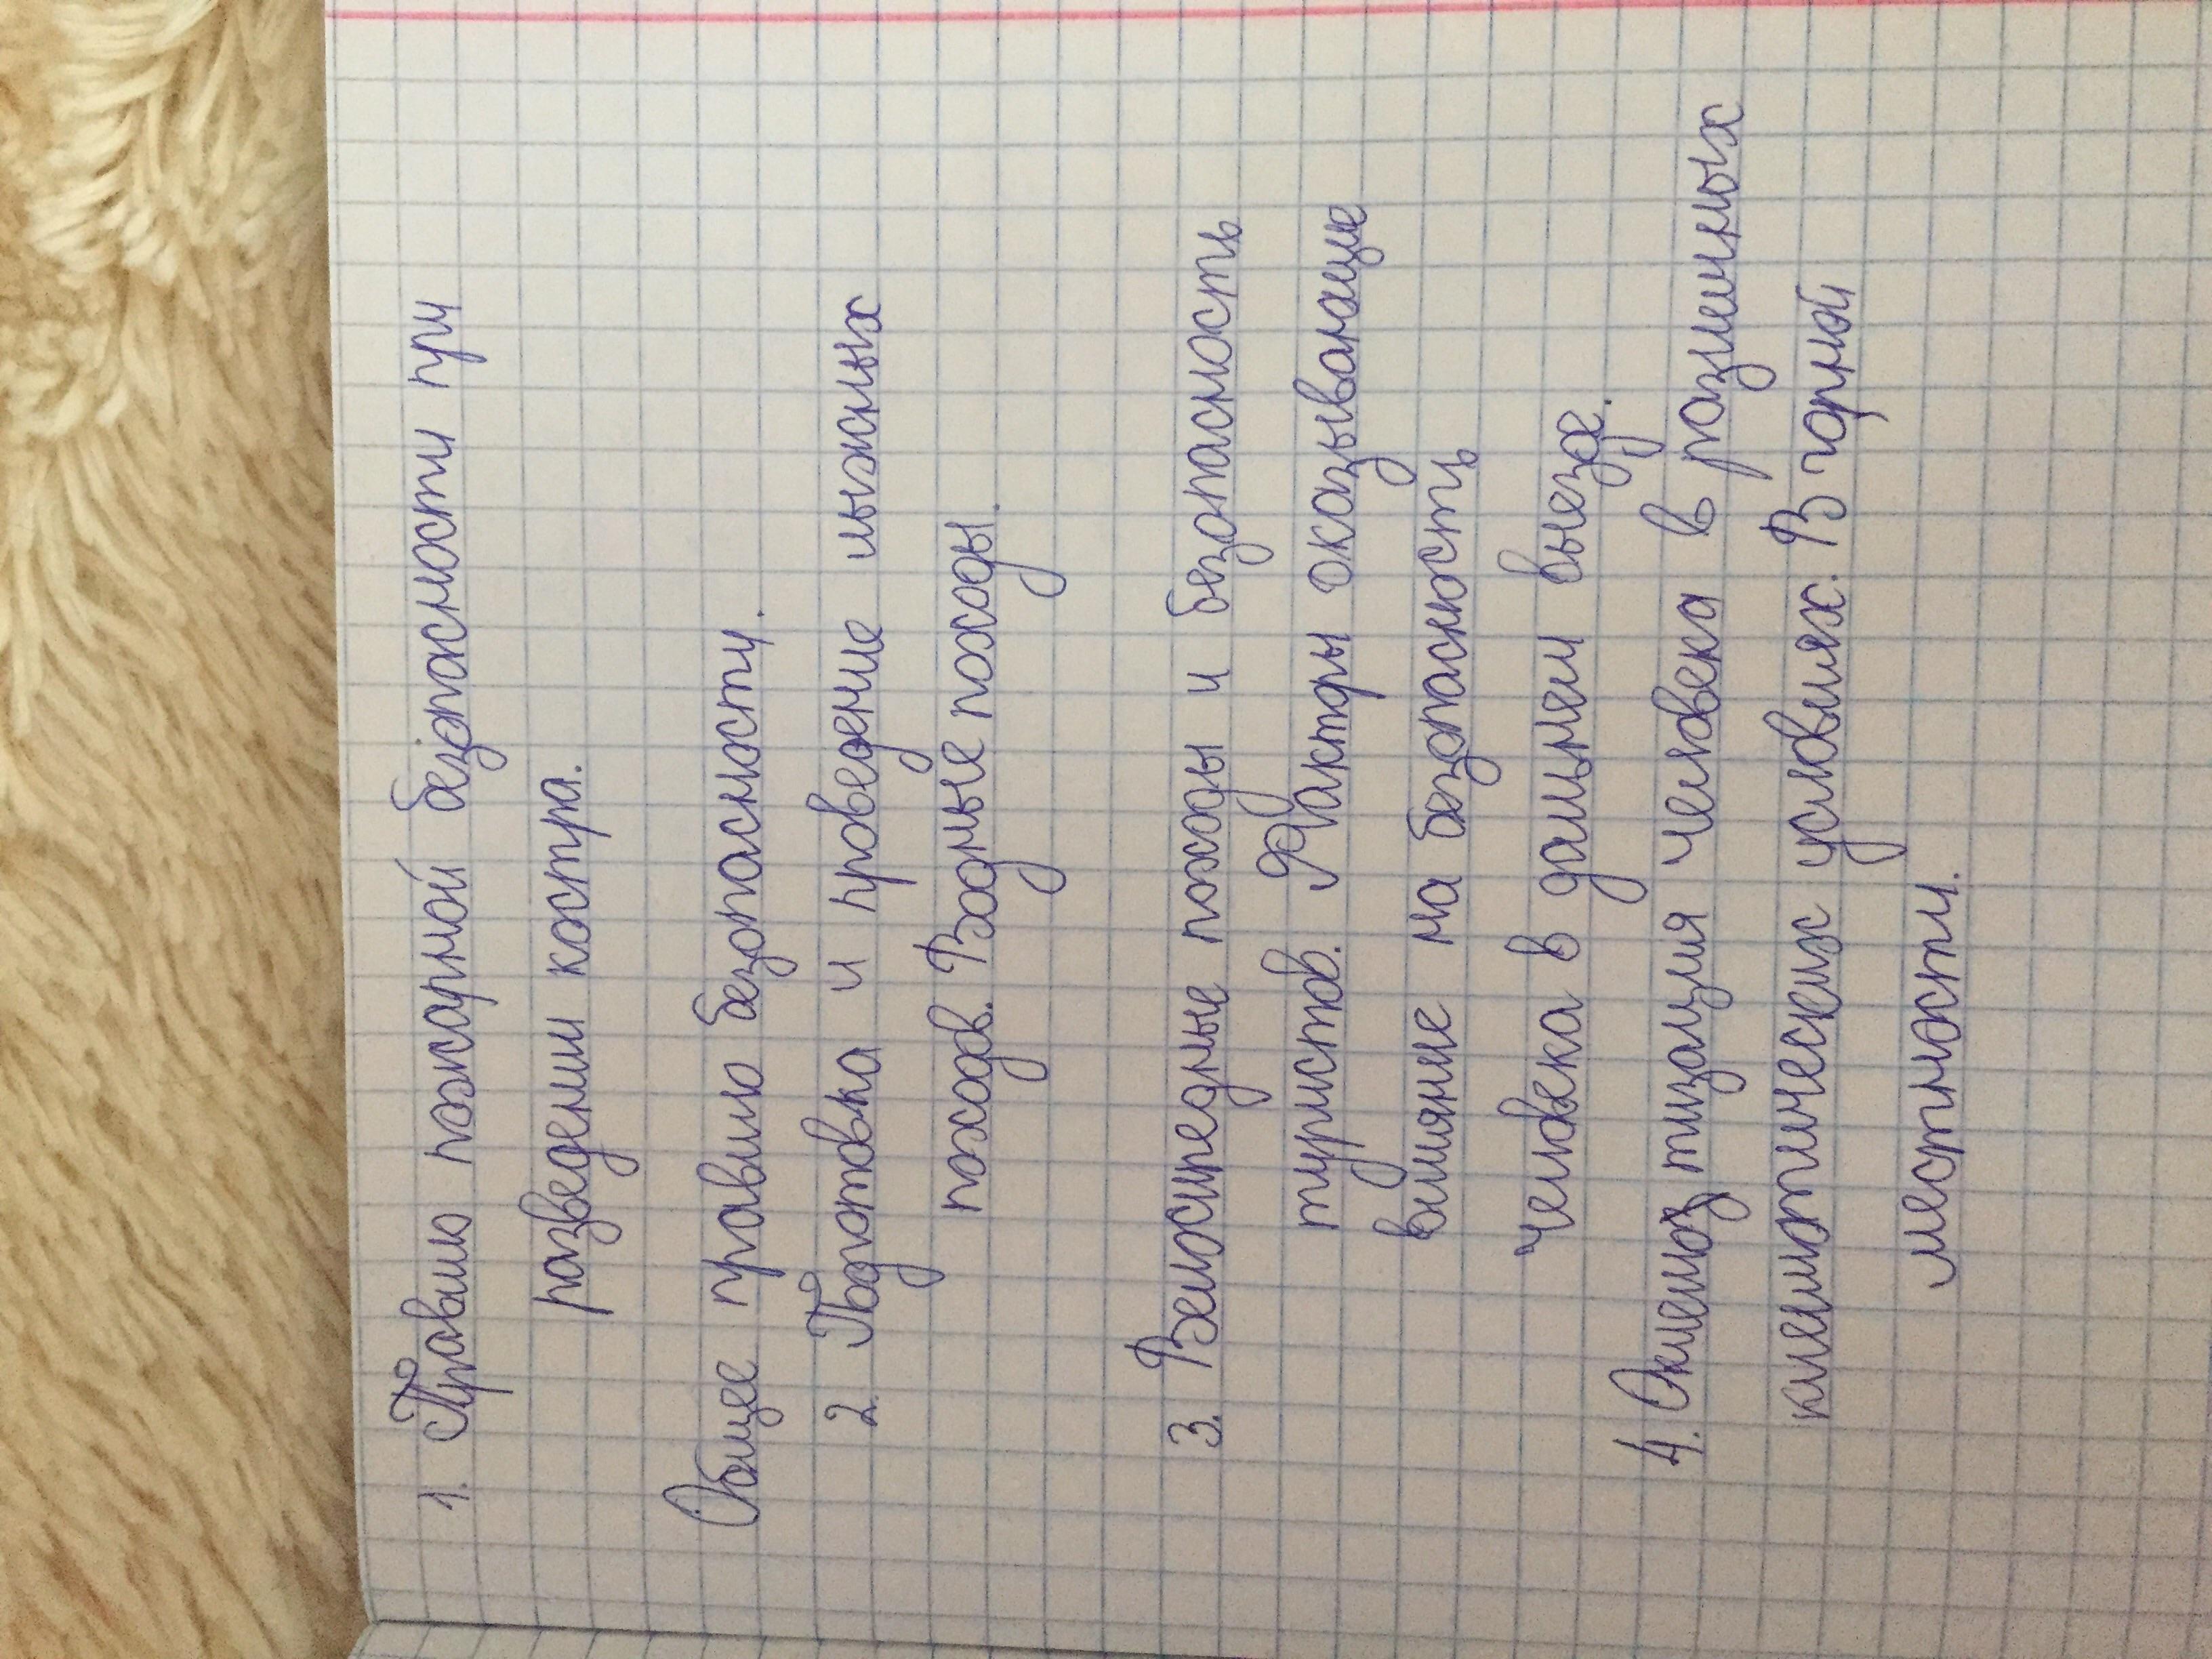 1. Правило пожарной безопасности при
разведении костра.
Общее правило безопасности.
2. Подготовка и проведение лыжных
походов. Водные походы.
3. Велосипедные походы и безопасность
туристов. Факторы оказывающие
влияние на безопасность
человека в дальнем выезде.
4. Аклематизация человека в различных
клематических условиях. В горной
местности.